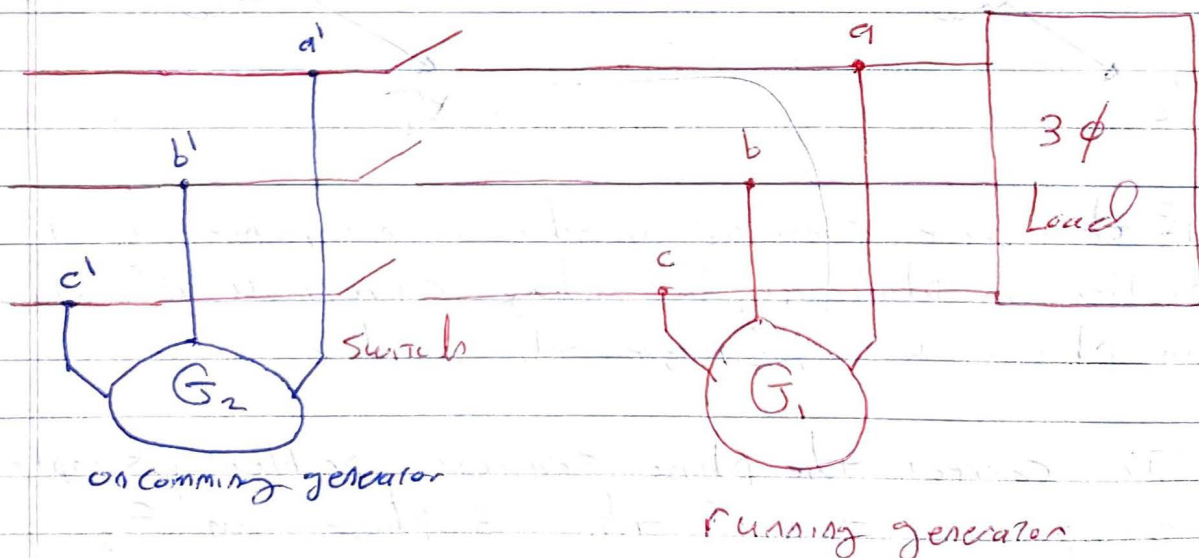 a'
a
b'
b
3 ϕ
Load
c'
c
Switch
G₂
G₁
oncomming generator
running generator